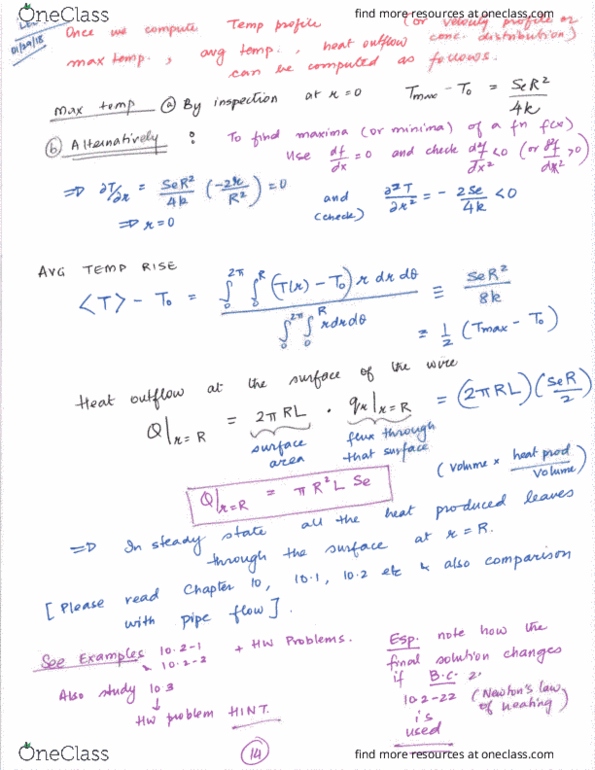 OneClass
find more resources at oneclass.com
01/29/18
Once we compute Temp profile (or velocity profile or conc. distribution)
max temp., avg temp., heat outflow
can be computed as follows.
max temp (a) By inspection at r=0 Tmax - T0 = SeR²/4k
(b) Alternatively : To find maxima (or minima) of a fn f(x)
Use df/dx = 0 and check d²f/dx² < 0 (or d²f/dx² > 0)
⇒ ∂T/∂r = SeR²/4k (-2r/R²) = 0 and (check) ∂²T/∂r² = - 2Se/4k < 0
⇒ r=0
AVG TEMP RISE
⟨T⟩ - T0 = ∫0^2π ∫0^R (T(r) - T0) r dr dθ / ∫0^2π ∫0^R r dr dθ ≡ SeR²/8k
= 1/2 (Tmax - T0)
Heat outflow at the surface of the wire
Q|r=R = 2πRL · qr|r=R = (2πRL)(SeR/2)
surface area
flux through that surface
Q|r=R = πR²L Se
(volume × heat prod/volume)
⇒ In steady state all the heat produced leaves
through the surface at r=R.
[Please read Chapter 10, 10.1, 10.2 etc & also comparison
with pipe flow].
See Examples 10.2-1 & 10.2-2 + HW Problems.
Also study 10.3
↓
HW problem HINT.
Esp. note how the
final solution changes
if B.C. 2.
10.2-22 (Newton's law of heating)
is
used
14
OneClass
find more resources at oneclass.com